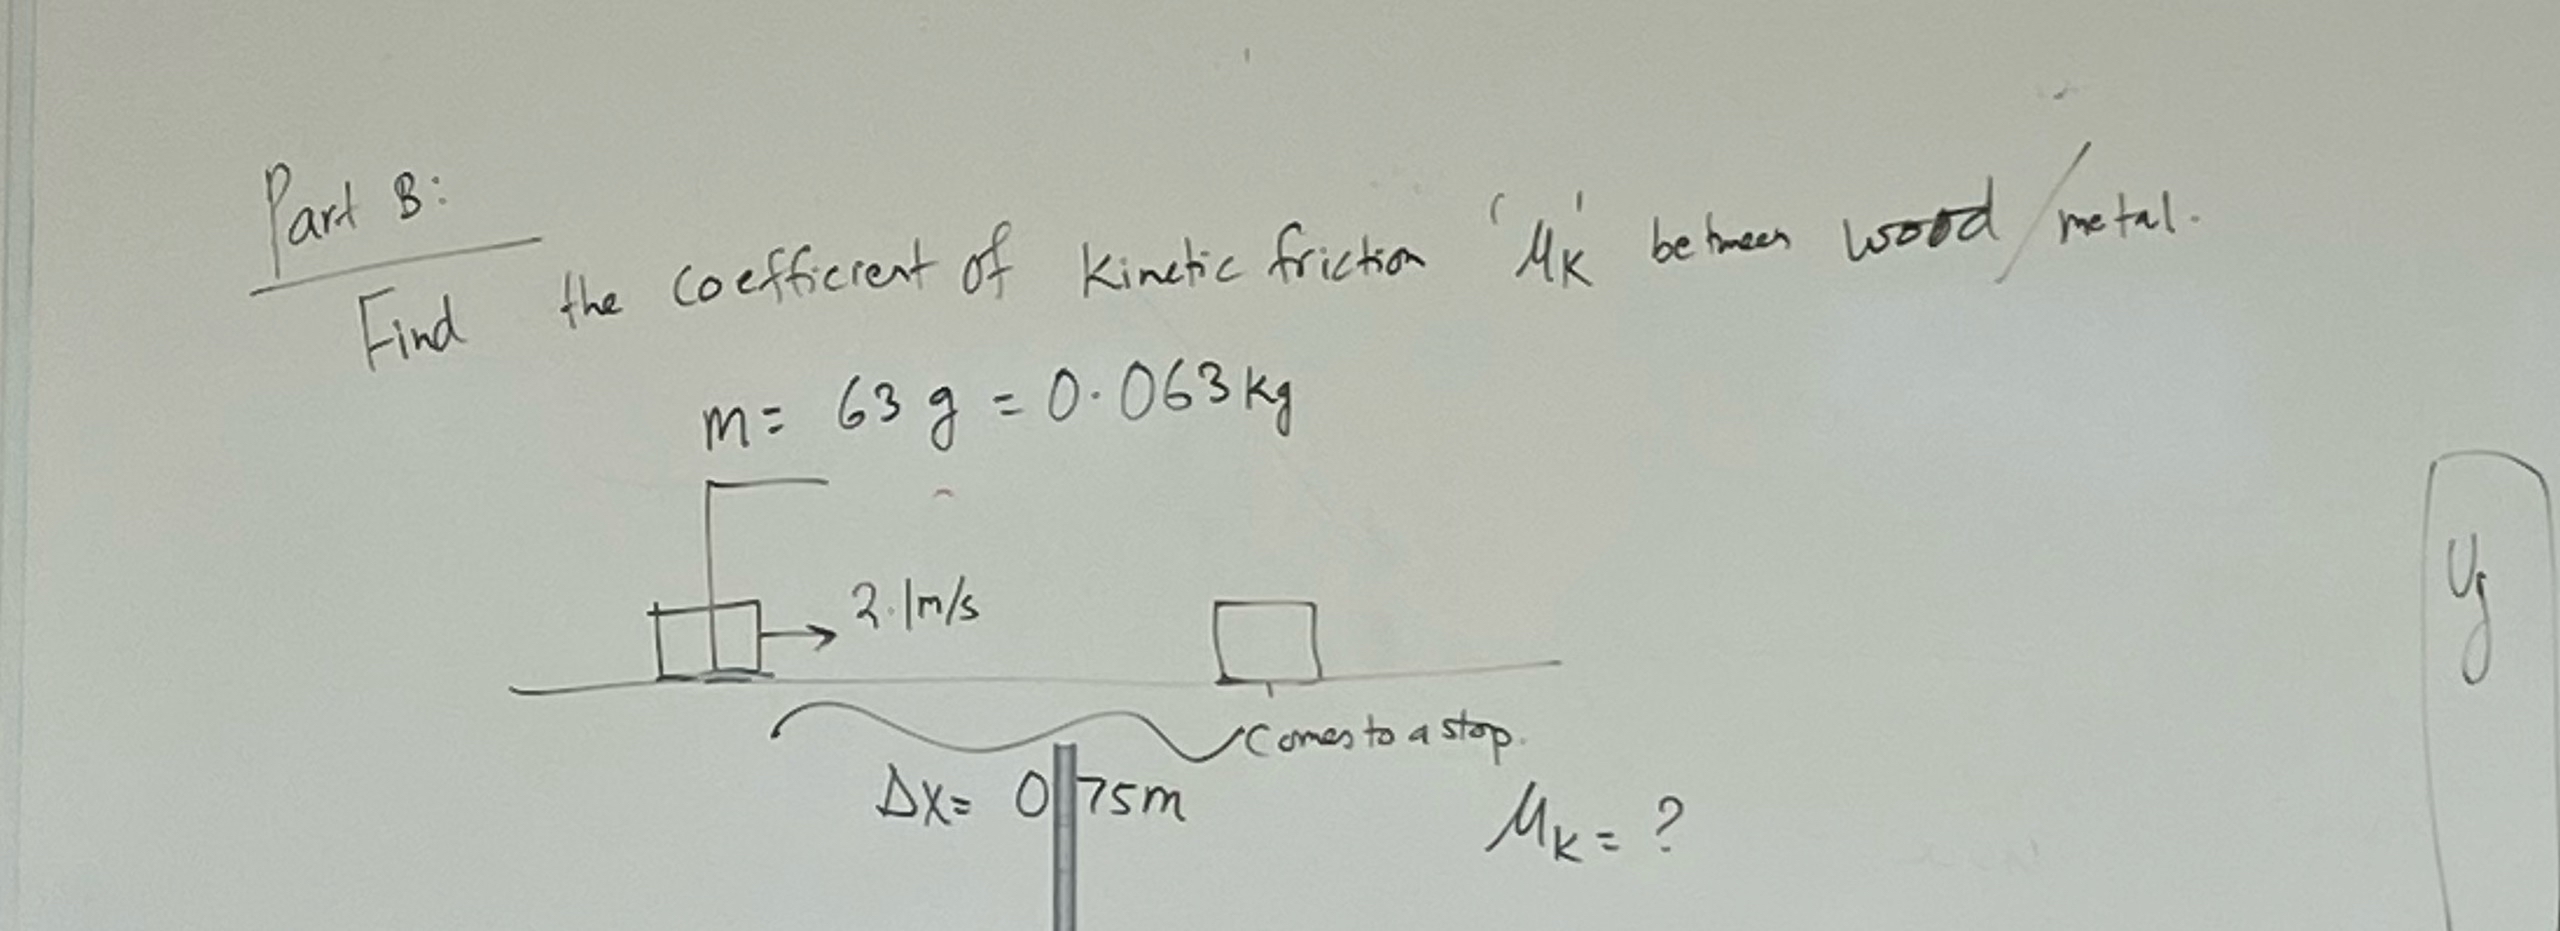 Part B:
Find the coefficient of kinetic friction 'μK' between wood/metal.
m = 63 g = 0.063 kg
2.1m/s
Comes to a stop.
Δx = 0 75m
μK = ?